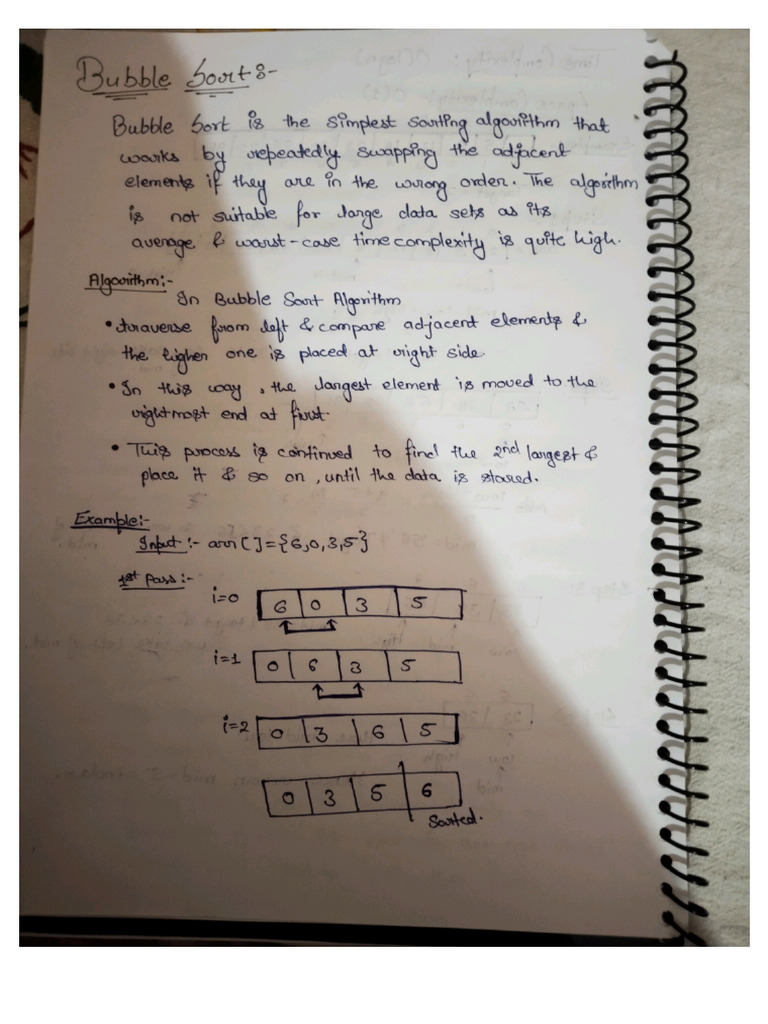 Bubble Sort :-
Bubble Sort is the simplest sorting algorithm that
works by repeatedly swapping the adjacent
elements if they are in the wrong order. The algorithm
is not suitable for large data sets as its
average & worst-case time complexity is quite high.
Algorithm:-
In Bubble Sort Algorithm
• traverse from left & compare adjacent elements &
the higher one is placed at right side.
• In this way, the largest element is moved to the
rightmost end at first.
• This process is continued to find the 2nd largest &
place it & so on, until the data is stored.
Example:-
Input :- arr[]={6,0,3,5}
1st Pass:-
i=0 6 0 3 5
i=1 0 6 3 5
i=2 0 3 6 5
0 3 5 6
Sorted.